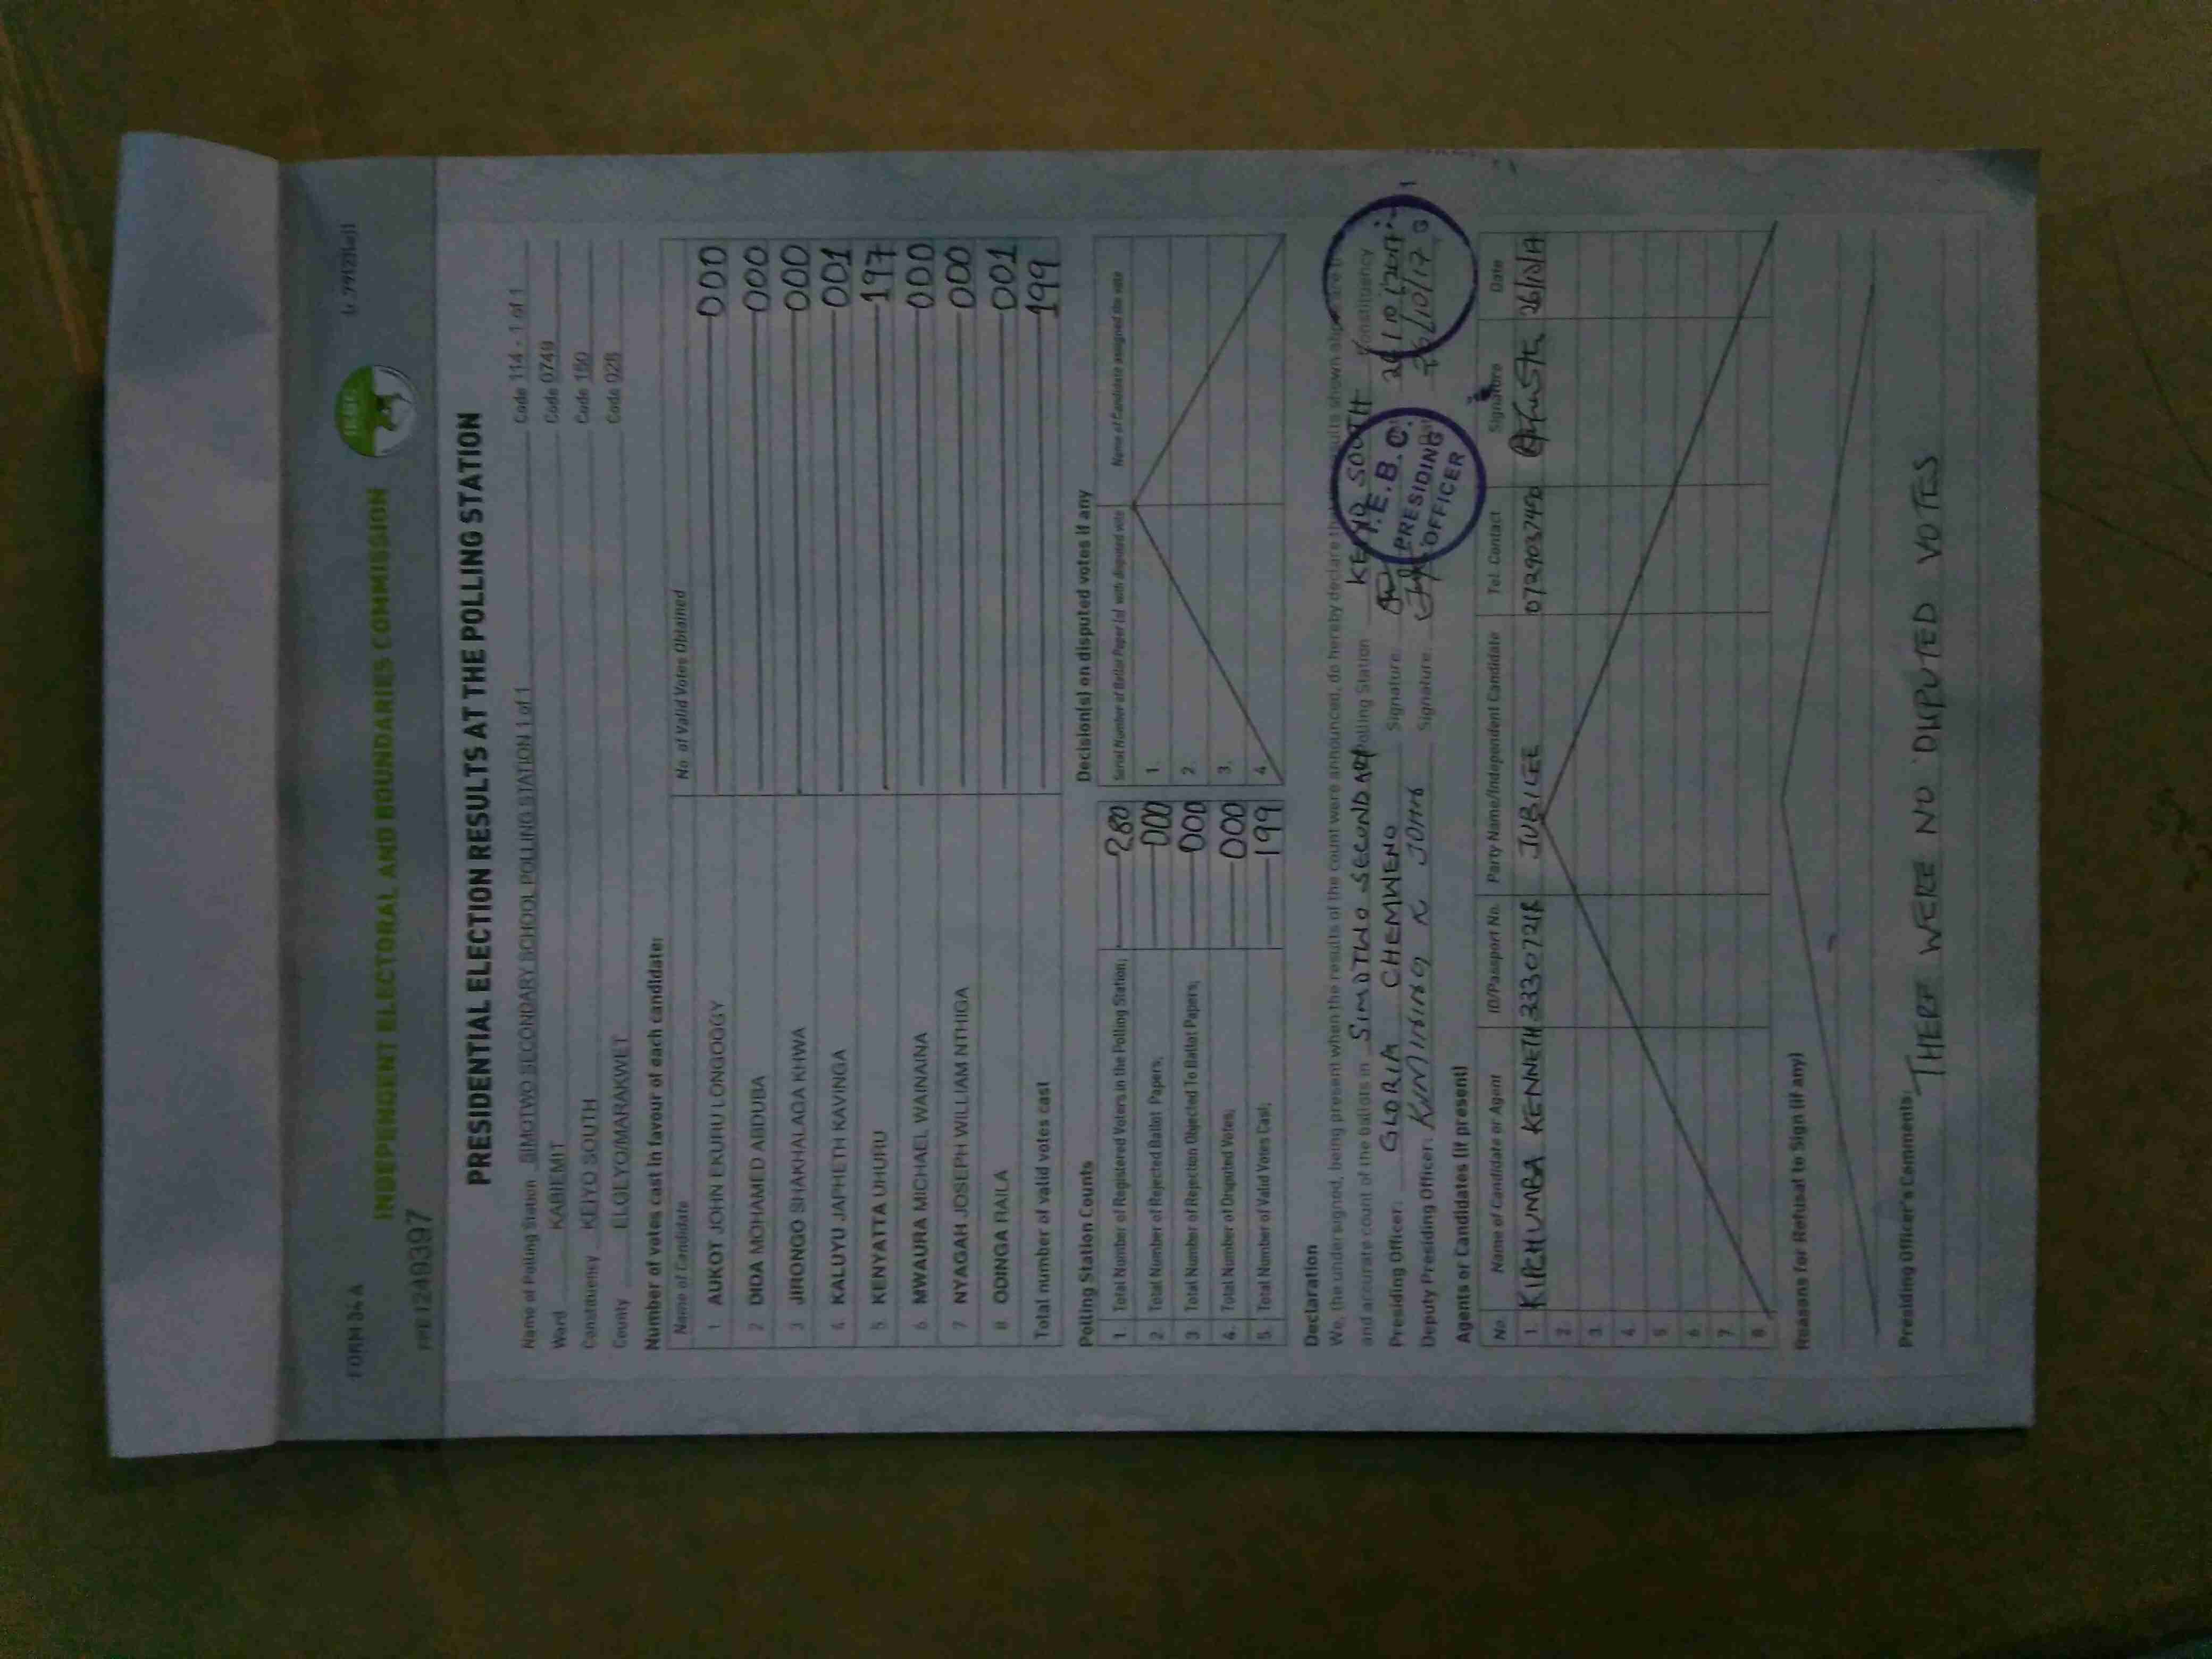 FORM 34 A
INDEPENDENT ELECTORAL AND BOUNDARIES COMMISSION
IEBC
PRESIDENTIAL ELECTION RESULTS AT THE POLLING STATION
Name of Polling Station SIMOTWO SECONDARY SCHOOL POLLING STATION 1 of 1 Code 114 - 1 of 1
Ward KABIEMIT Code 0749
Constituency KEIYO SOUTH Code 150
County ELGEYO/MARAKWET Code 028
Number of votes cast in favour of each candidate:
Name of Candidate No of Valid Votes Obtained
1 AUKOT JOHN EKURU LONGOGGY 000
2 DIDA MOHAMED ABDUBA 000
3 JIRONGO SHAKHALAGA KHWA 000
4 KALUYU JAPHETH KAVINGA 001
5 KENYATTA UHURU 197
6 MWAURA MICHAEL WAINAINA 000
7 NYAGAH JOSEPH WILLIAM NTHIGA 000
8 ODINGA RAILA 001
Total number of valid votes cast 199
Polling Station Counts
1 Total Number of Registered Voters in the Polling Station; 280
2. Total Number of Rejected Ballot Papers; 000
3 Total Number of Rejection Objected To Ballot Papers; 000
4. Total Number of Disputed Votes; 000
5 Total Number of Valid Votes Cast; 199
Decision(s) on disputed votes if any
Serial Number of Ballot Paper (s) with disputed vote Name of Candidate assigned the vote
1.
2.
3.
4
Declaration
We, the undersigned, being present when the results of the count were announced, do hereby declare that the results shown above are
and accurate count of the ballots in SIMOTWO SECONDARY Polling Station KEIYO SOUTH Constituency
Presiding Officer: GLORIA CHEMWENO Signature: 26/10/2017
Deputy Presiding Officer: KIMINING K JOHN Signature: 26/10/17
I.E.B.C.
PRESIDING
OFFICER
Agents or Candidates (if present)
No. Name of Candidate or Agent ID/Passport No. Party Name/Independent Candidate Tel. Contact Signature Date
1. KIPCHUMBA KENNETH JUBILEE
2
3.
4
5
6.
7.
8
Reasons for Refusal to Sign (if any)
Presiding Officer's Comments:
THERE WERE NO DISPUTED VOTES